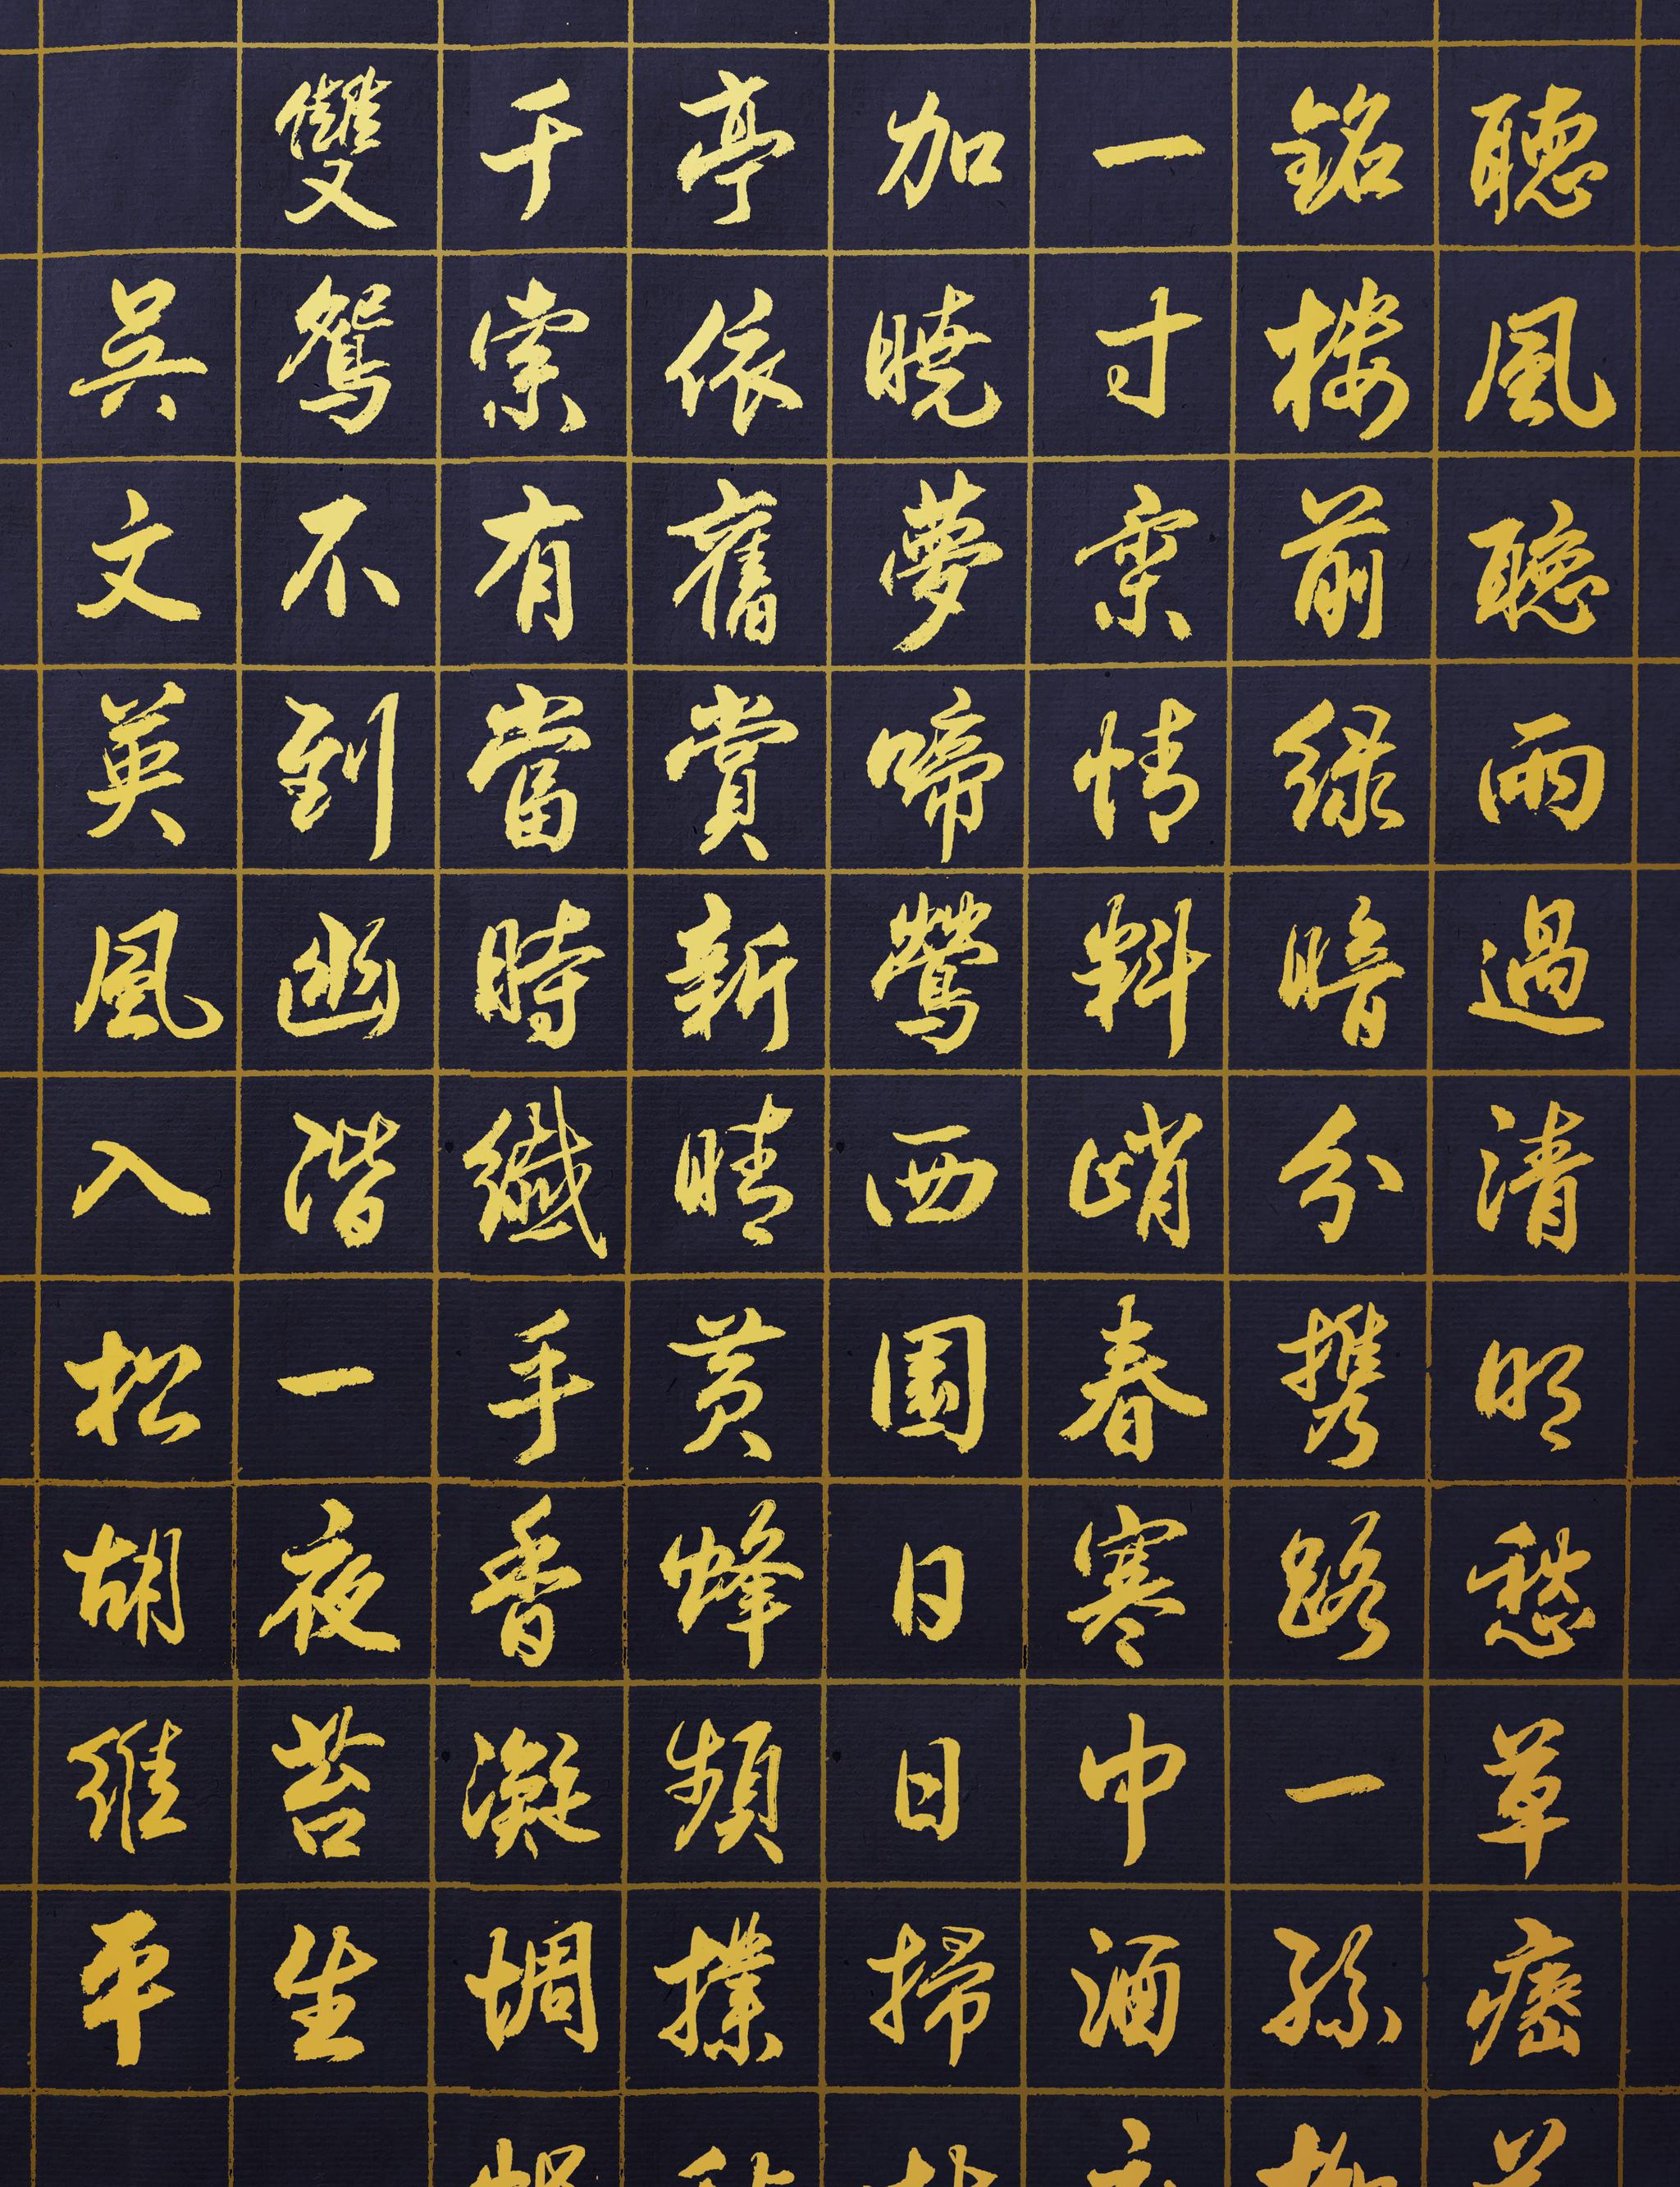 聽風聽雨過清明愁草瘞
銘樓前緑暗分攜路一絲
一寸柔情料峭春寒中酒
加曉夢啼鶯西園日日掃
亭依舊賞新晴黄蜂頻撲
千索有當時纖手香凝惆
雙鴛不到幽階一夜苔生
吳文英風入松胡維平